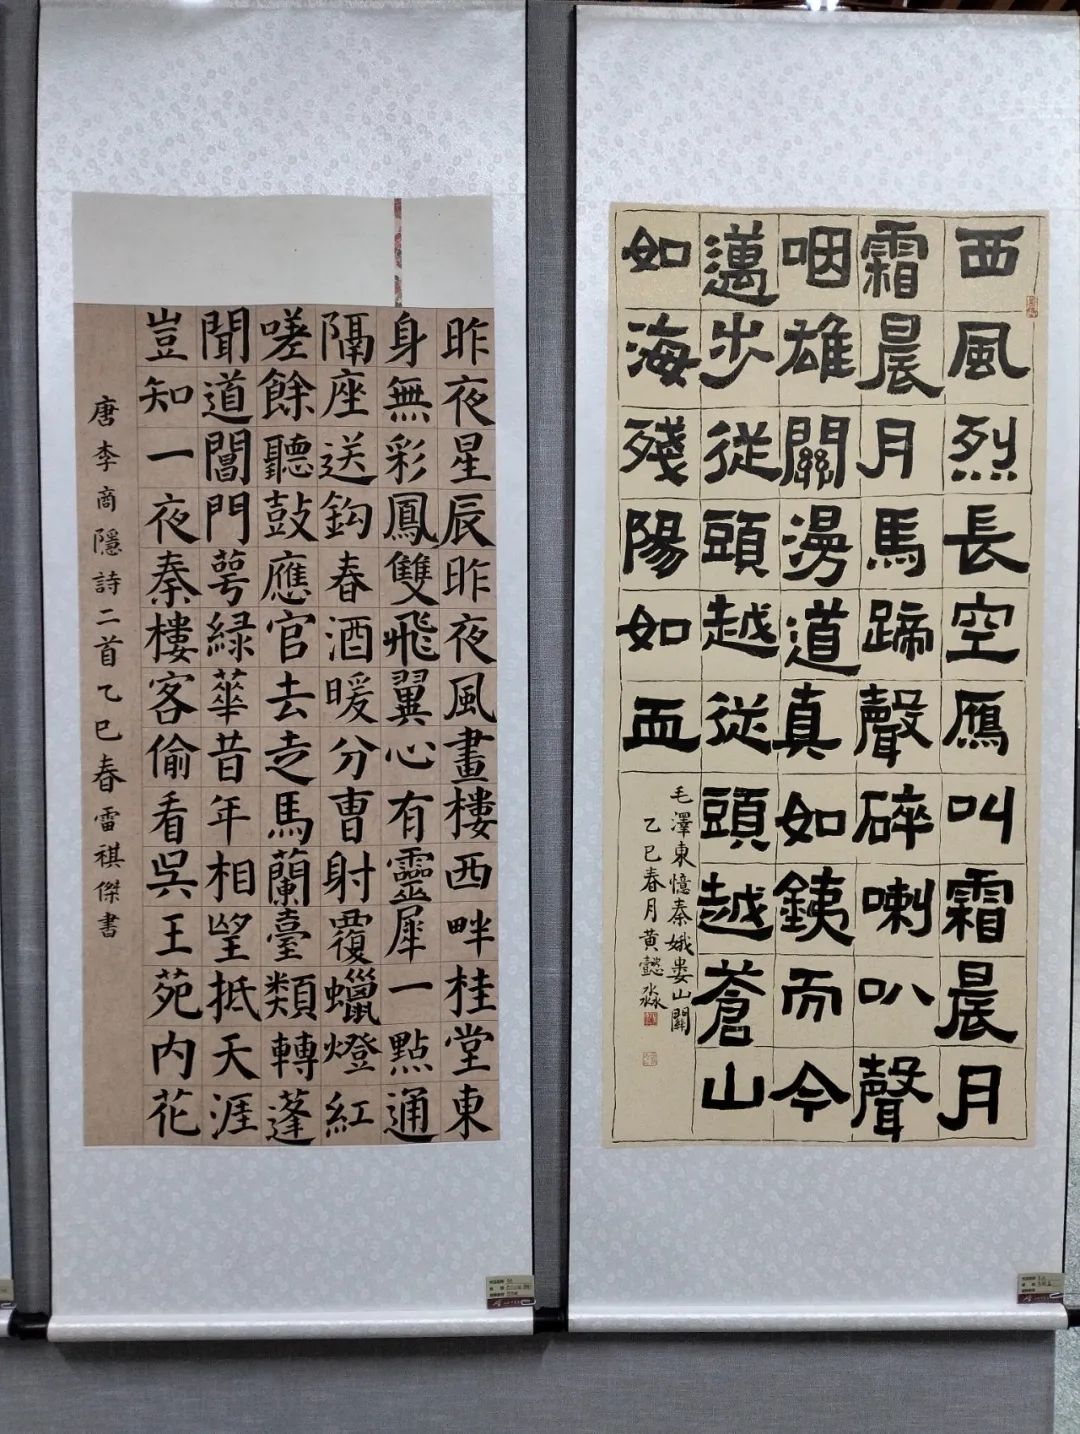 昨夜星辰昨夜風畫樓西畔桂堂東
身無彩鳳雙飛翼心有靈犀一點通
隔座送鈎春酒暖分曹射覆蠟燈紅
嗟餘聽鼓應官去走馬蘭臺類轉蓬
聞道閶門萼緑華昔年相望抵天涯
豈知一夜秦樓客偷看吳王苑内花
唐李商隱詩二首乙巳春雷祺傑書
西風烈長空鴈叫霜晨月
霜晨月馬蹄聲碎喇叭聲
咽雄關漫道真如銕而今
邁步從頭越從頭越蒼山
如海殘陽如血
毛澤東憶秦娥婁山關
乙巳春月黄懿淼